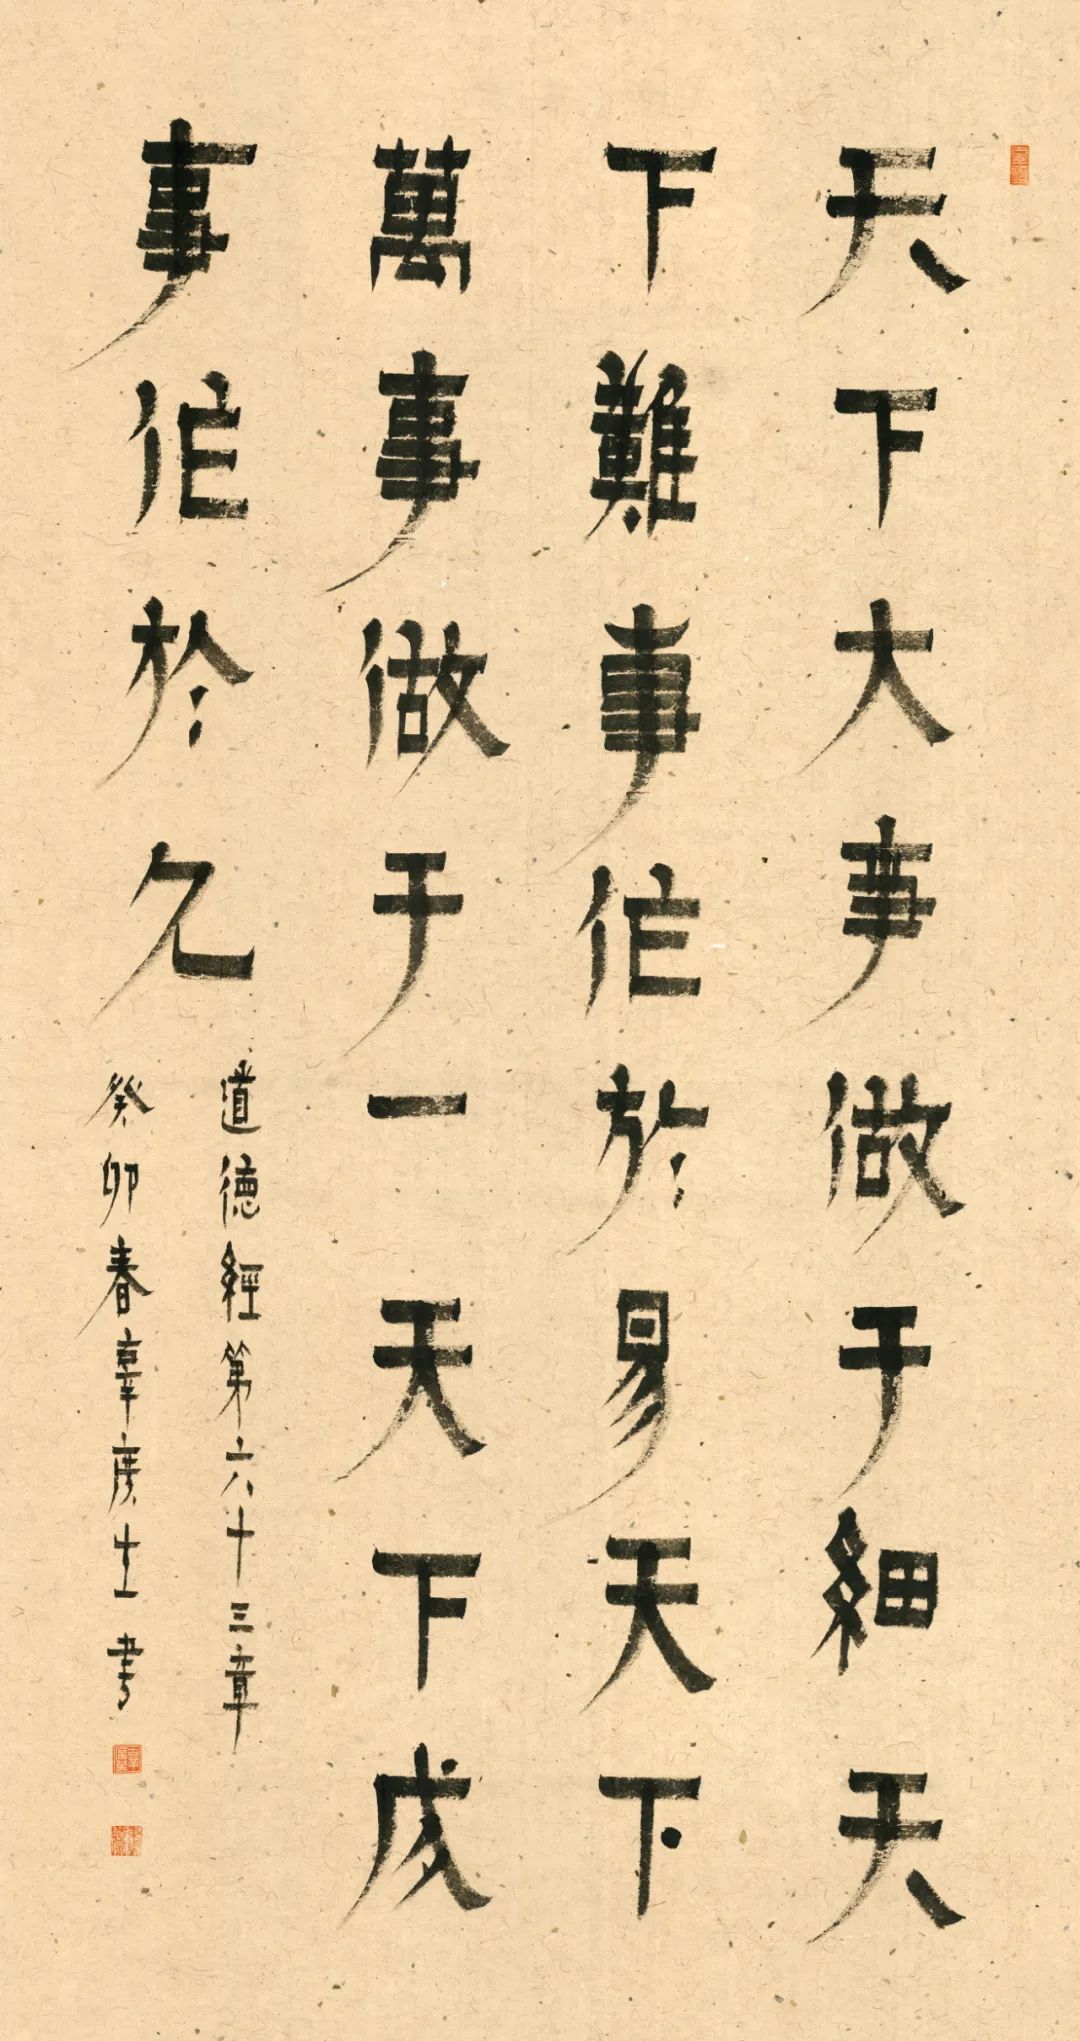 天下大事做于細天
下難事作於易天下
萬事做于一天下成
事作於久
道德經第六十三章
癸卯春辜廣士書